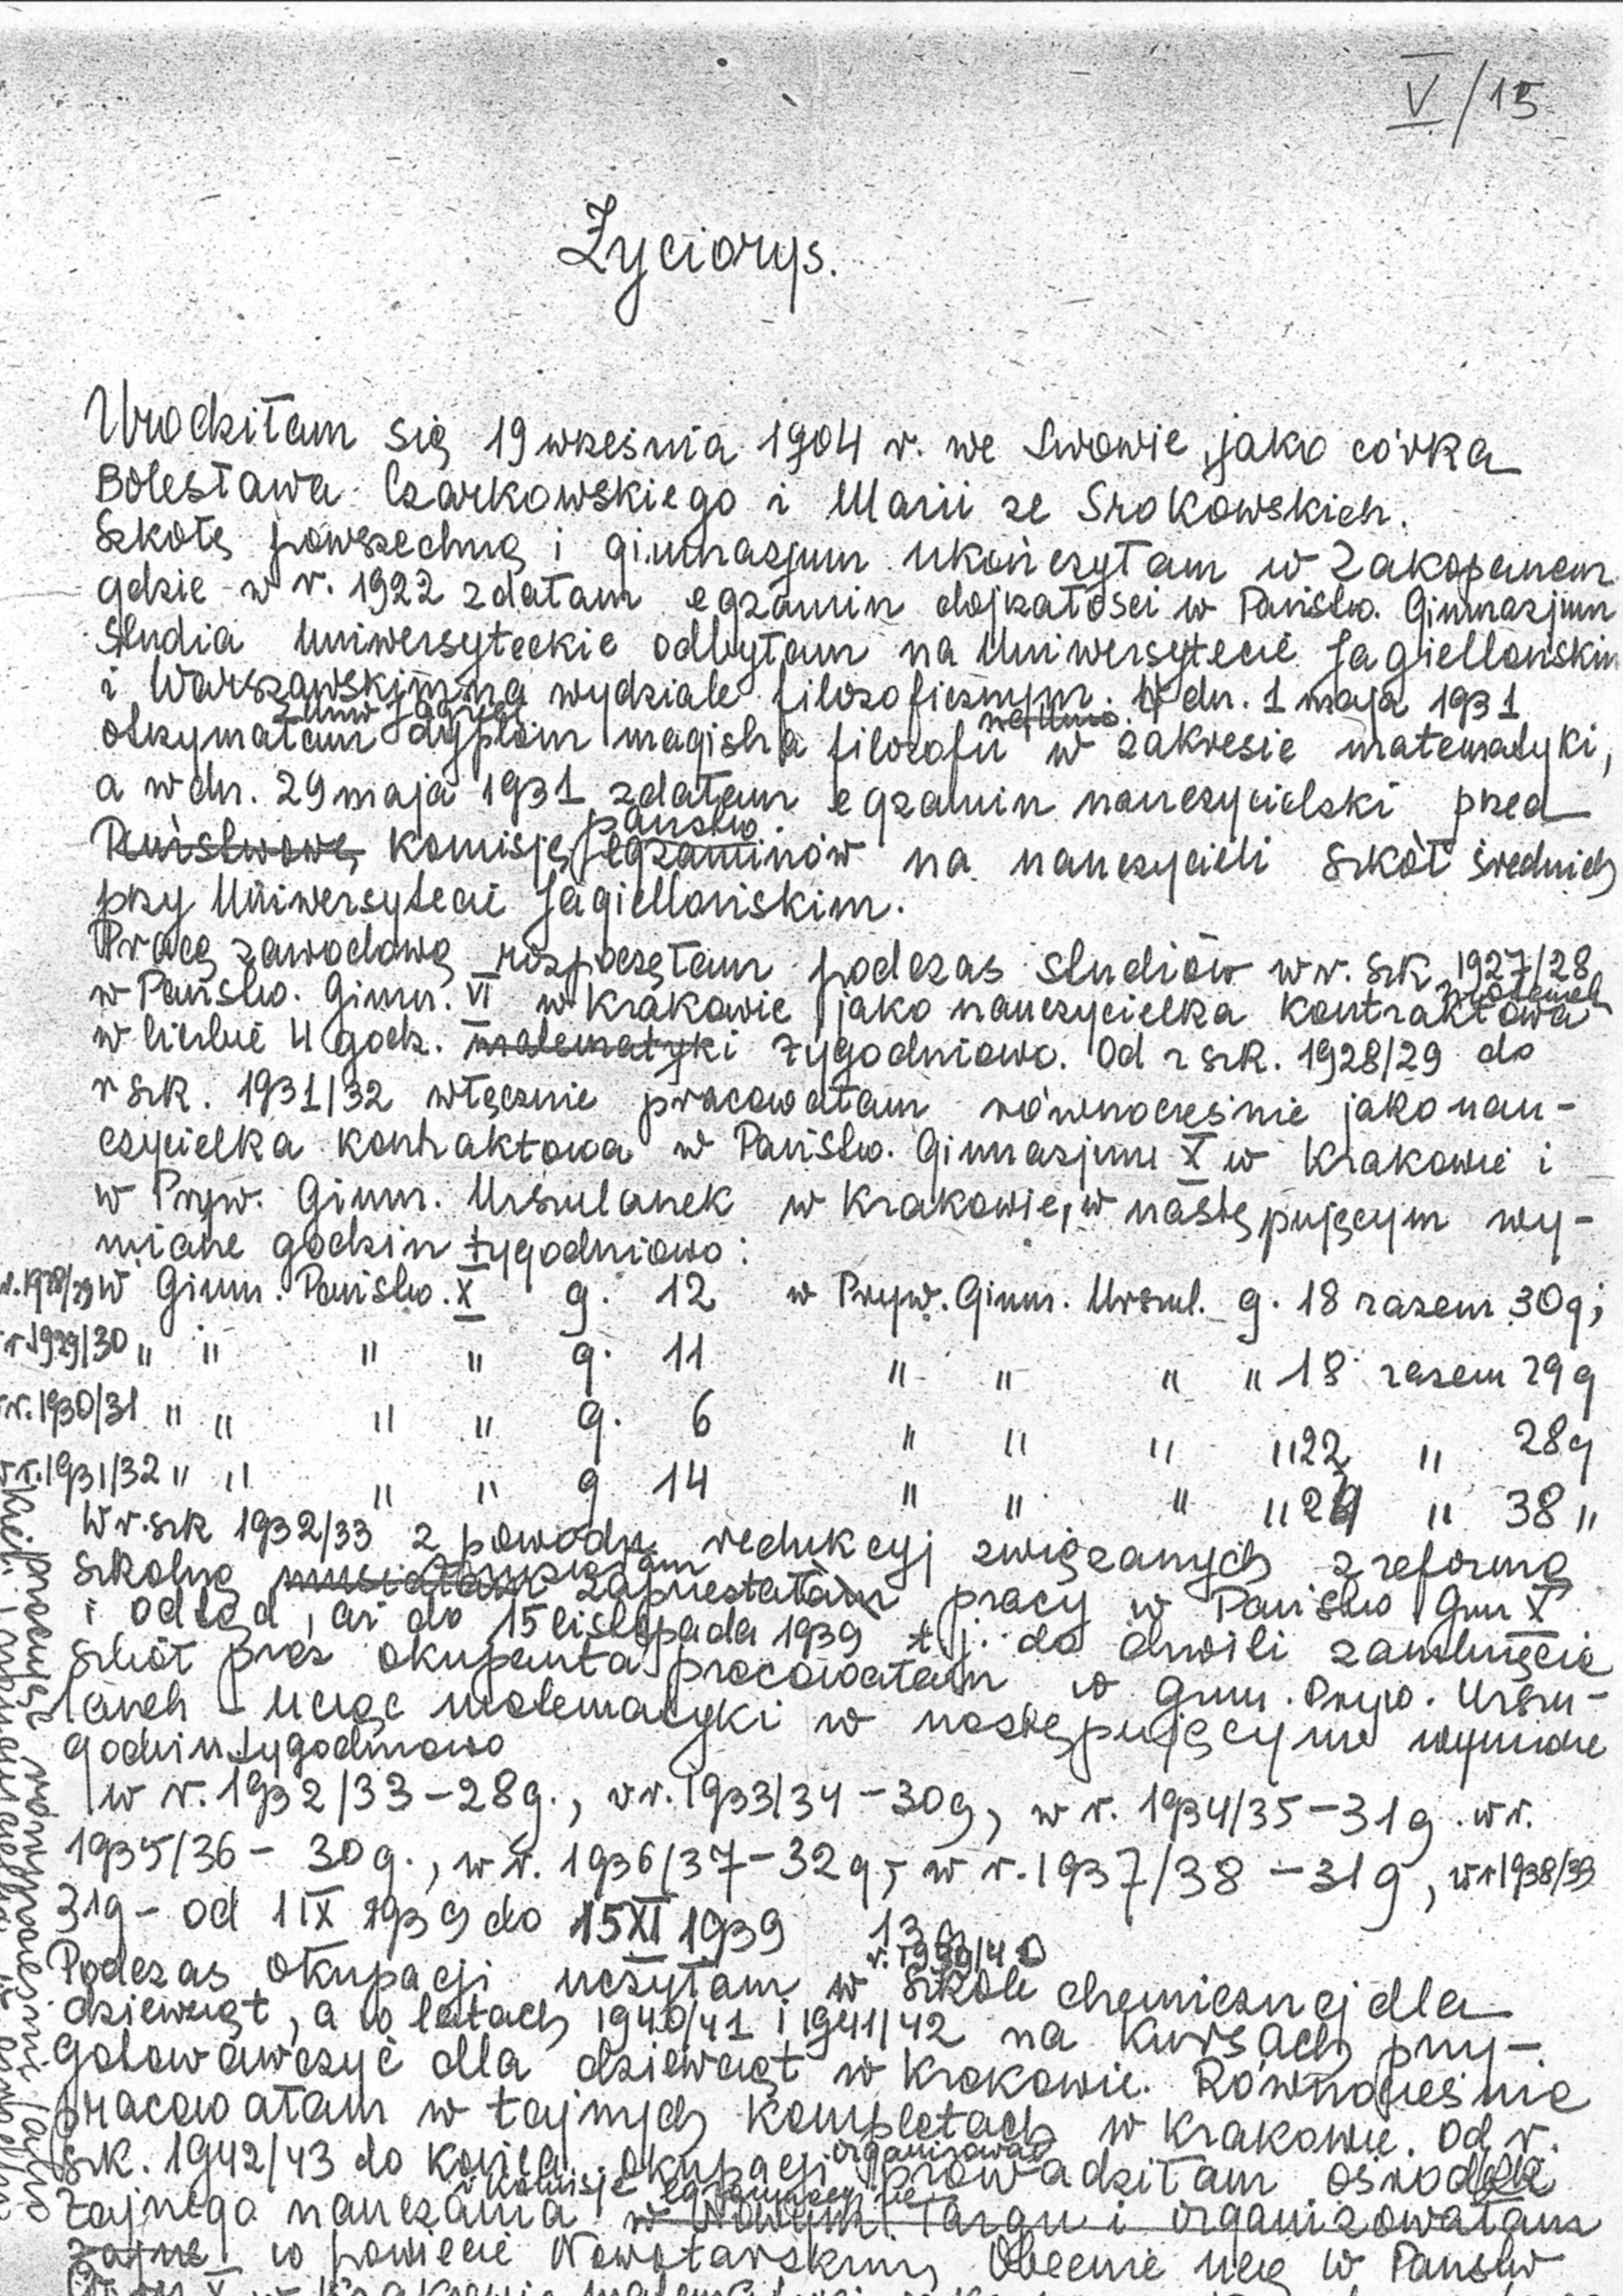 V/15
Życiorys.
Urodziłam się 19 września 1904 r. we Lwowie, jako córka
Bolesława Czarkowskiego i Marii ze Srokowskich.
Szkołę powszechną i gimnazjum ukończyłam w Zakopanem
gdzie w r. 1922 zdałam egzamin dojrzałości w Państw. Gimnazjum
Studia uniwersyteckie odbyłam na Uniwersytecie Jagiellońskim
i Warszawskim na wydziale filozoficznym. W dn. 1 maja 1931
otrzymałam dyplom magistra filozofii w zakresie matematyki,
a w dn. 29 maja 1931 zdałam egzamin nauczycielski przed
Państwową komisją państw. egzaminów na nauczycieli szkół średnich
przy Uniwersytecie Jagiellońskim.
Pracę zawodową rozpoczęłam podczas studiów w r. szk. 1927/28
w Państw. Gimn. VI w Krakowie jako nauczycielka kontraktowa
w liczbie 4 godz. matematyki tygodniowo. Od r szk. 1928/29 do
r szk. 1931/32 włącznie pracowałam równocześnie jako nau-
czycielka kontraktowa w Państw. Gimnazjum X w Krakowie i
w Pryw. Gimn. Urszulanek w Krakowie, w następującym wy-
miarze godzin tygodniowo:
w r. 1928/29 w Gimn. Państw. X g. 12 w Pryw. Gimn. Urszul. g. 18 razem 30g;
w r 1929/30 " " " " g. 11 " " " " 18 razem 29g
w r. 1930/31 " " " " g. 6 " " " " 22 " 28g
w r. 1931/32 " " " " g 14 " " " " 24 " 38 "
W r. szk 1932/33 z powodu redukcyj związanych z reformą
szkolną musiałam zaprzestałam pracy w Państw Gmn X
i odtąd, aż do 15 listopada 1939 t.j. do chwili zamknięcia
szkół przez okupanta pracowałam w Gmn. Pryw. Urszu-
lanek - ucząc matematyki w następującym wymiarze
godzin tygodniowo
w r. 1932/33 - 28g., w r. 1933/34 - 30g, w r. 1934/35 - 31g. w r.
1935/36 - 30g., w r. 1936/37 - 32g, w r. 1937/38 - 31g, w r 1938/39
31g - od 1 IX 1939 do 15 XI 1939 13g
Podczas okupacji uczyłam w r. 1939/40 szkole chemicznej dla
dziewcząt, a w latach 1940/41 i 1941/42 na kursach przy-
gotowawczych dla dziewcząt w Krakowie. Równocześnie
pracowałam w tajnych kompletach w Krakowie. Od r.
szk. 1942/43 do końca okupacji prowadziłam ośrodek
tajnego nauczania w Nowym Targu i organizowałam
tajne w powiecie Nowotarskim, Obecnie uczę w Państw